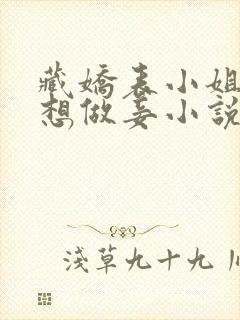 藏嬌表小姐
想做妾小說
淺草九十九